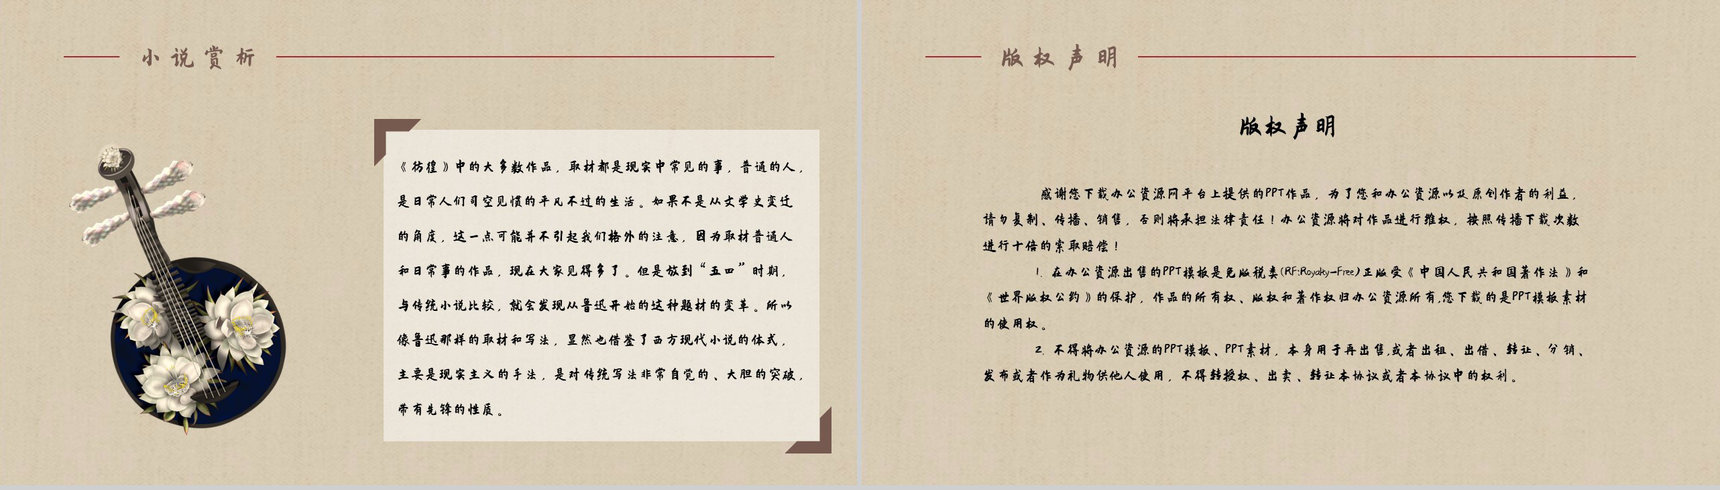 小说赏析
《彷徨》中的大多数作品，取材都是现实中常见的事，普通的人，
是日常人们司空见惯的平凡不过的生活。如果不是从文学史变迁
的角度，这一点可能并不引起我们格外的注意，因为取材普通人
和日常事的作品，现在大家见得多了。但是放到“五四”时期，
与传统小说比较，就会发现从鲁迅开始的这种题材的变革。所以
像鲁迅那样的取材和写法，显然也借鉴了西方现代小说的体式，
主要是现实主义的手法，是对传统写法非常自觉的、大胆的突破，
带有先锋的性质。
版权声明
版权声明
感谢您下载办公资源网平台上提供的PPT作品，为了您和办公资源以及原创作者的利益，
请勿复制、传播、销售，否则将承担法律责任！办公资源将对作品进行维权，按照传播下载次数
进行十倍的索取赔偿！
1. 在办公资源出售的PPT模板是免版税类(RF:Royalty-Free)正版受《中国人民共和国著作法》和
《世界版权公约》的保护，作品的所有权、版权和著作权归办公资源所有,您下载的是PPT模板素材
的使用权。
2. 不得将办公资源的PPT模板、PPT素材，本身用于再出售,或者出租、出借、转让、分销、
发布或者作为礼物供他人使用，不得转授权、出卖、转让本协议或者本协议中的权利。